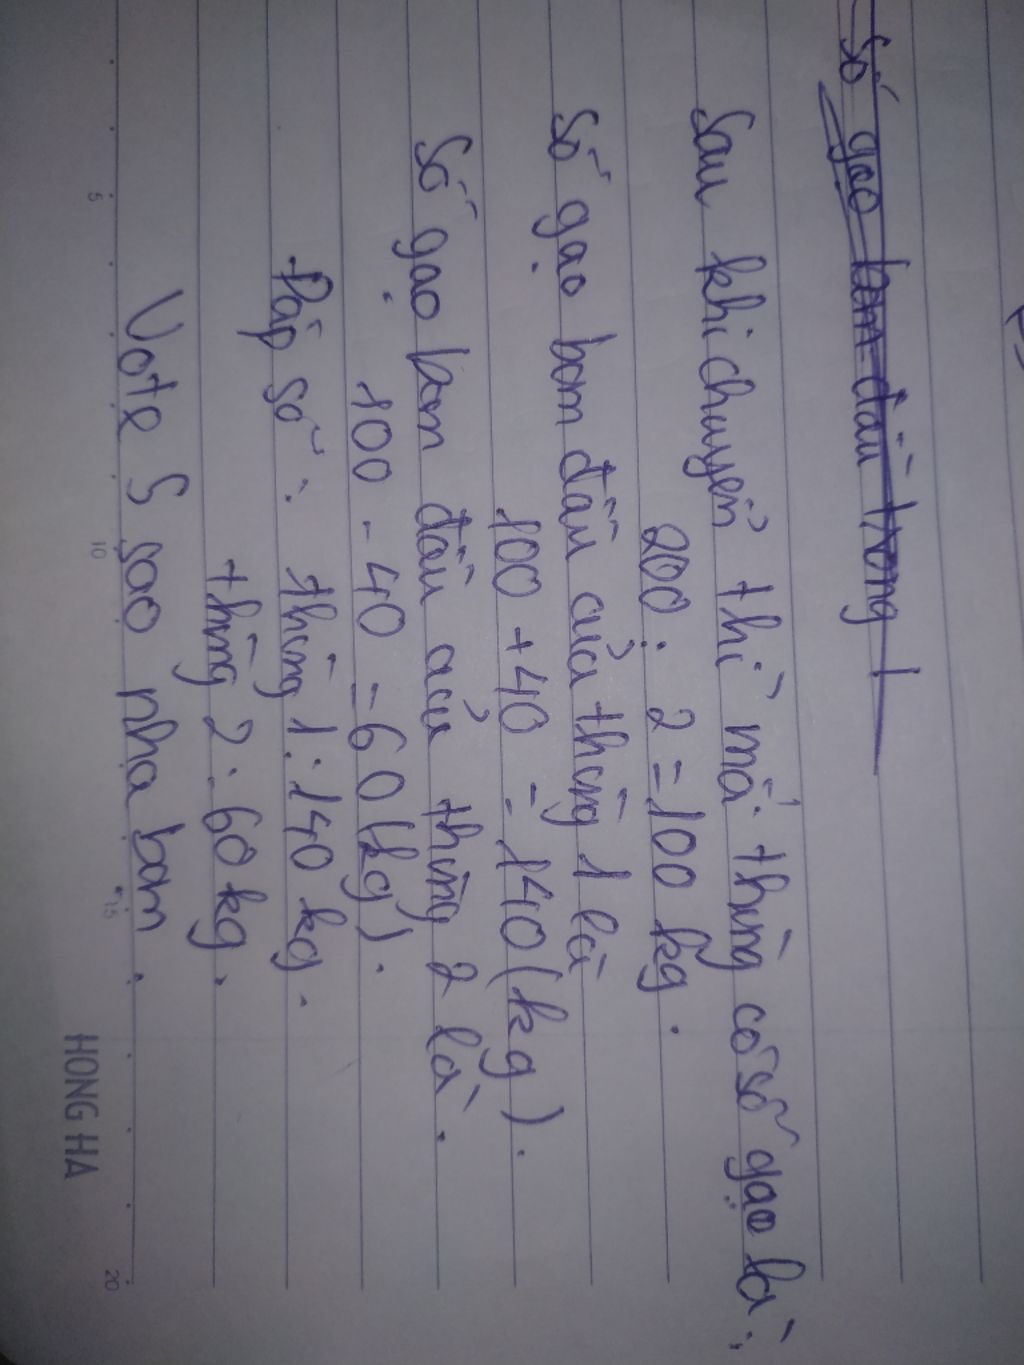 Số gạo bam đầu trong 1
Sau khi chuyển thì mỗi thùng có số gạo là:
200 : 2 = 100 kg.
Số gạo bam đầu của thùng 1 là
100 + 40 = 140 (kg).
Số gạo bam đầu của thùng 2 là.
100 - 40 = 60 (kg).
Đáp số : thùng 1 : 140 kg.
thùng 2 : 60 kg.
Vote 5 sao nha bam.
5 10 15 20
HONG HA